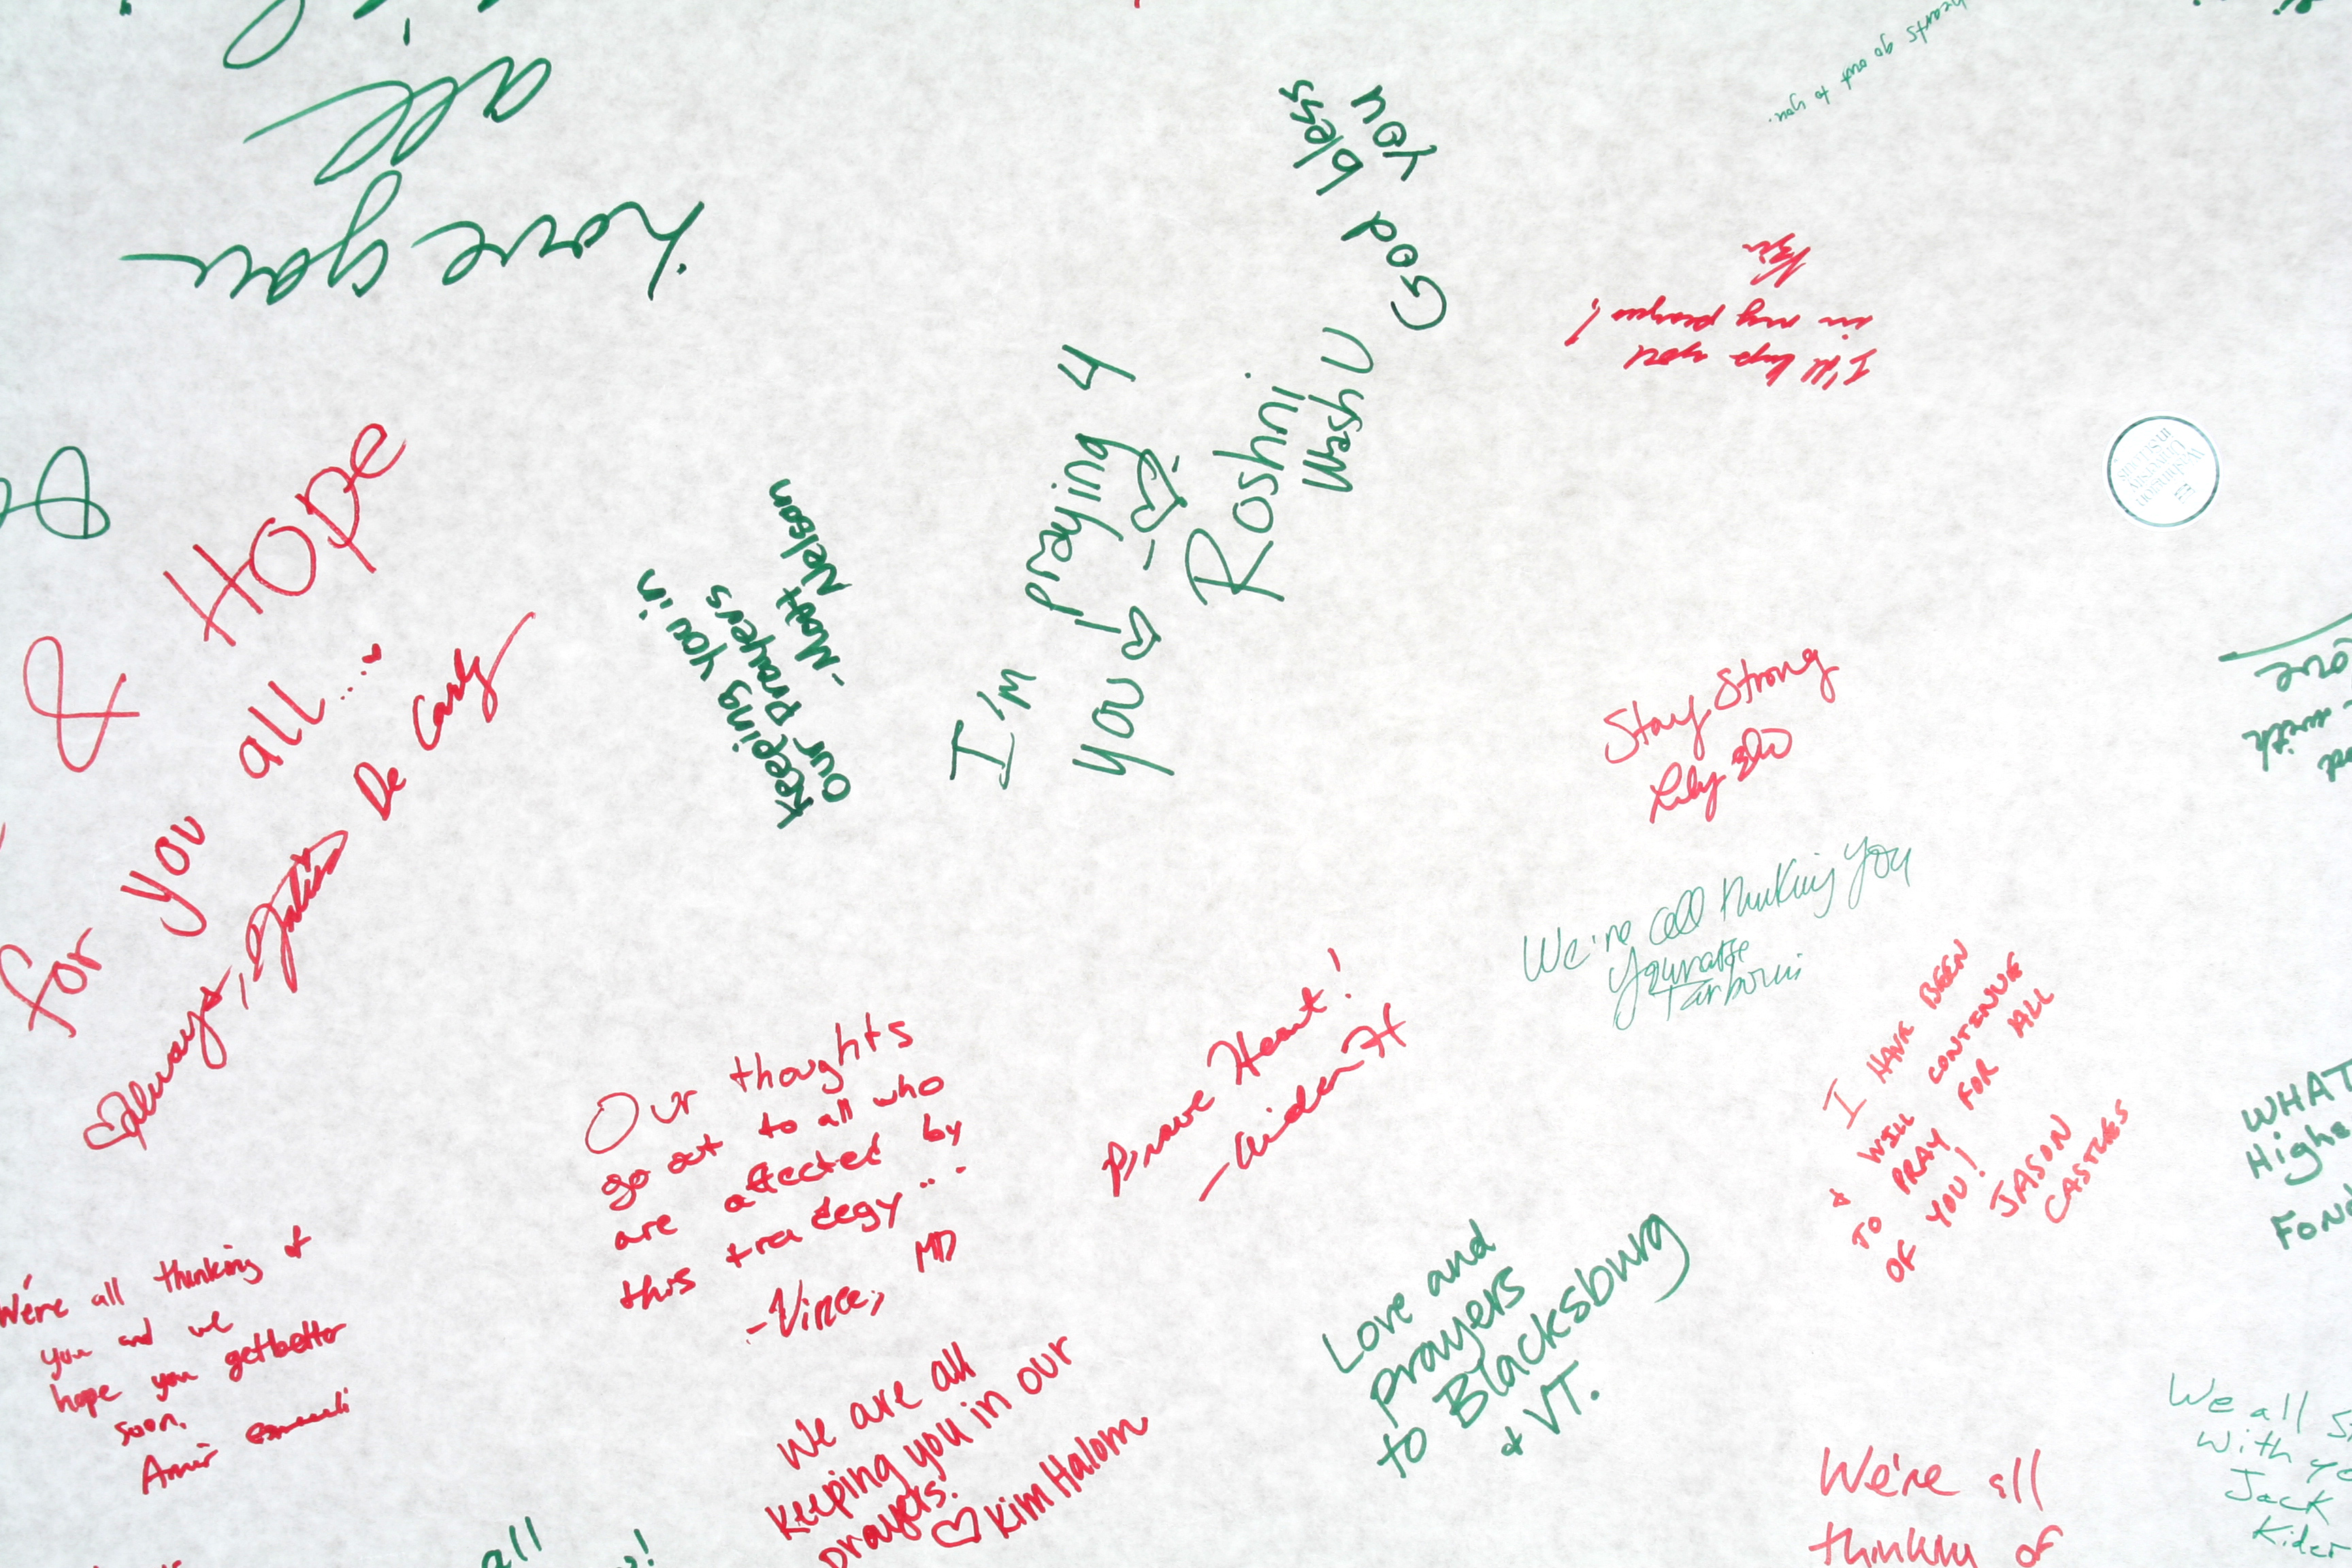 hearts go out to you.
all
have you
God bless
you
I'll keep you
in my prayers!
& Hope
for you all....
Always,
De Carly
Keeping you in
our prayers
- Matt Nelson
I'm praying 4
you
Roshni
Wash U
WASHINGTON
UNIVERSITY
IN ST. LOUIS
Stay Strong
Lily
We're all thinking you
I HAVE BEEN
& WILL CONTINUE
TO PRAY FOR ALL
OF YOU!
JASON
CASTLES
Our thoughts
go out to all who
are affected by
this tradegy...
-Vince, MD
Brave Heart!
-Aiden H
We're all thinking of
you and we
hope you getbetter
soon.
Amir
We are all
keeping you in our
prayers.
Kim Halom
Love and
prayers
to Blacksburg
& VT.
WHAT
Highe
Fond
with
We're all
thinking of
We all
with yo
Jack
Kider
all